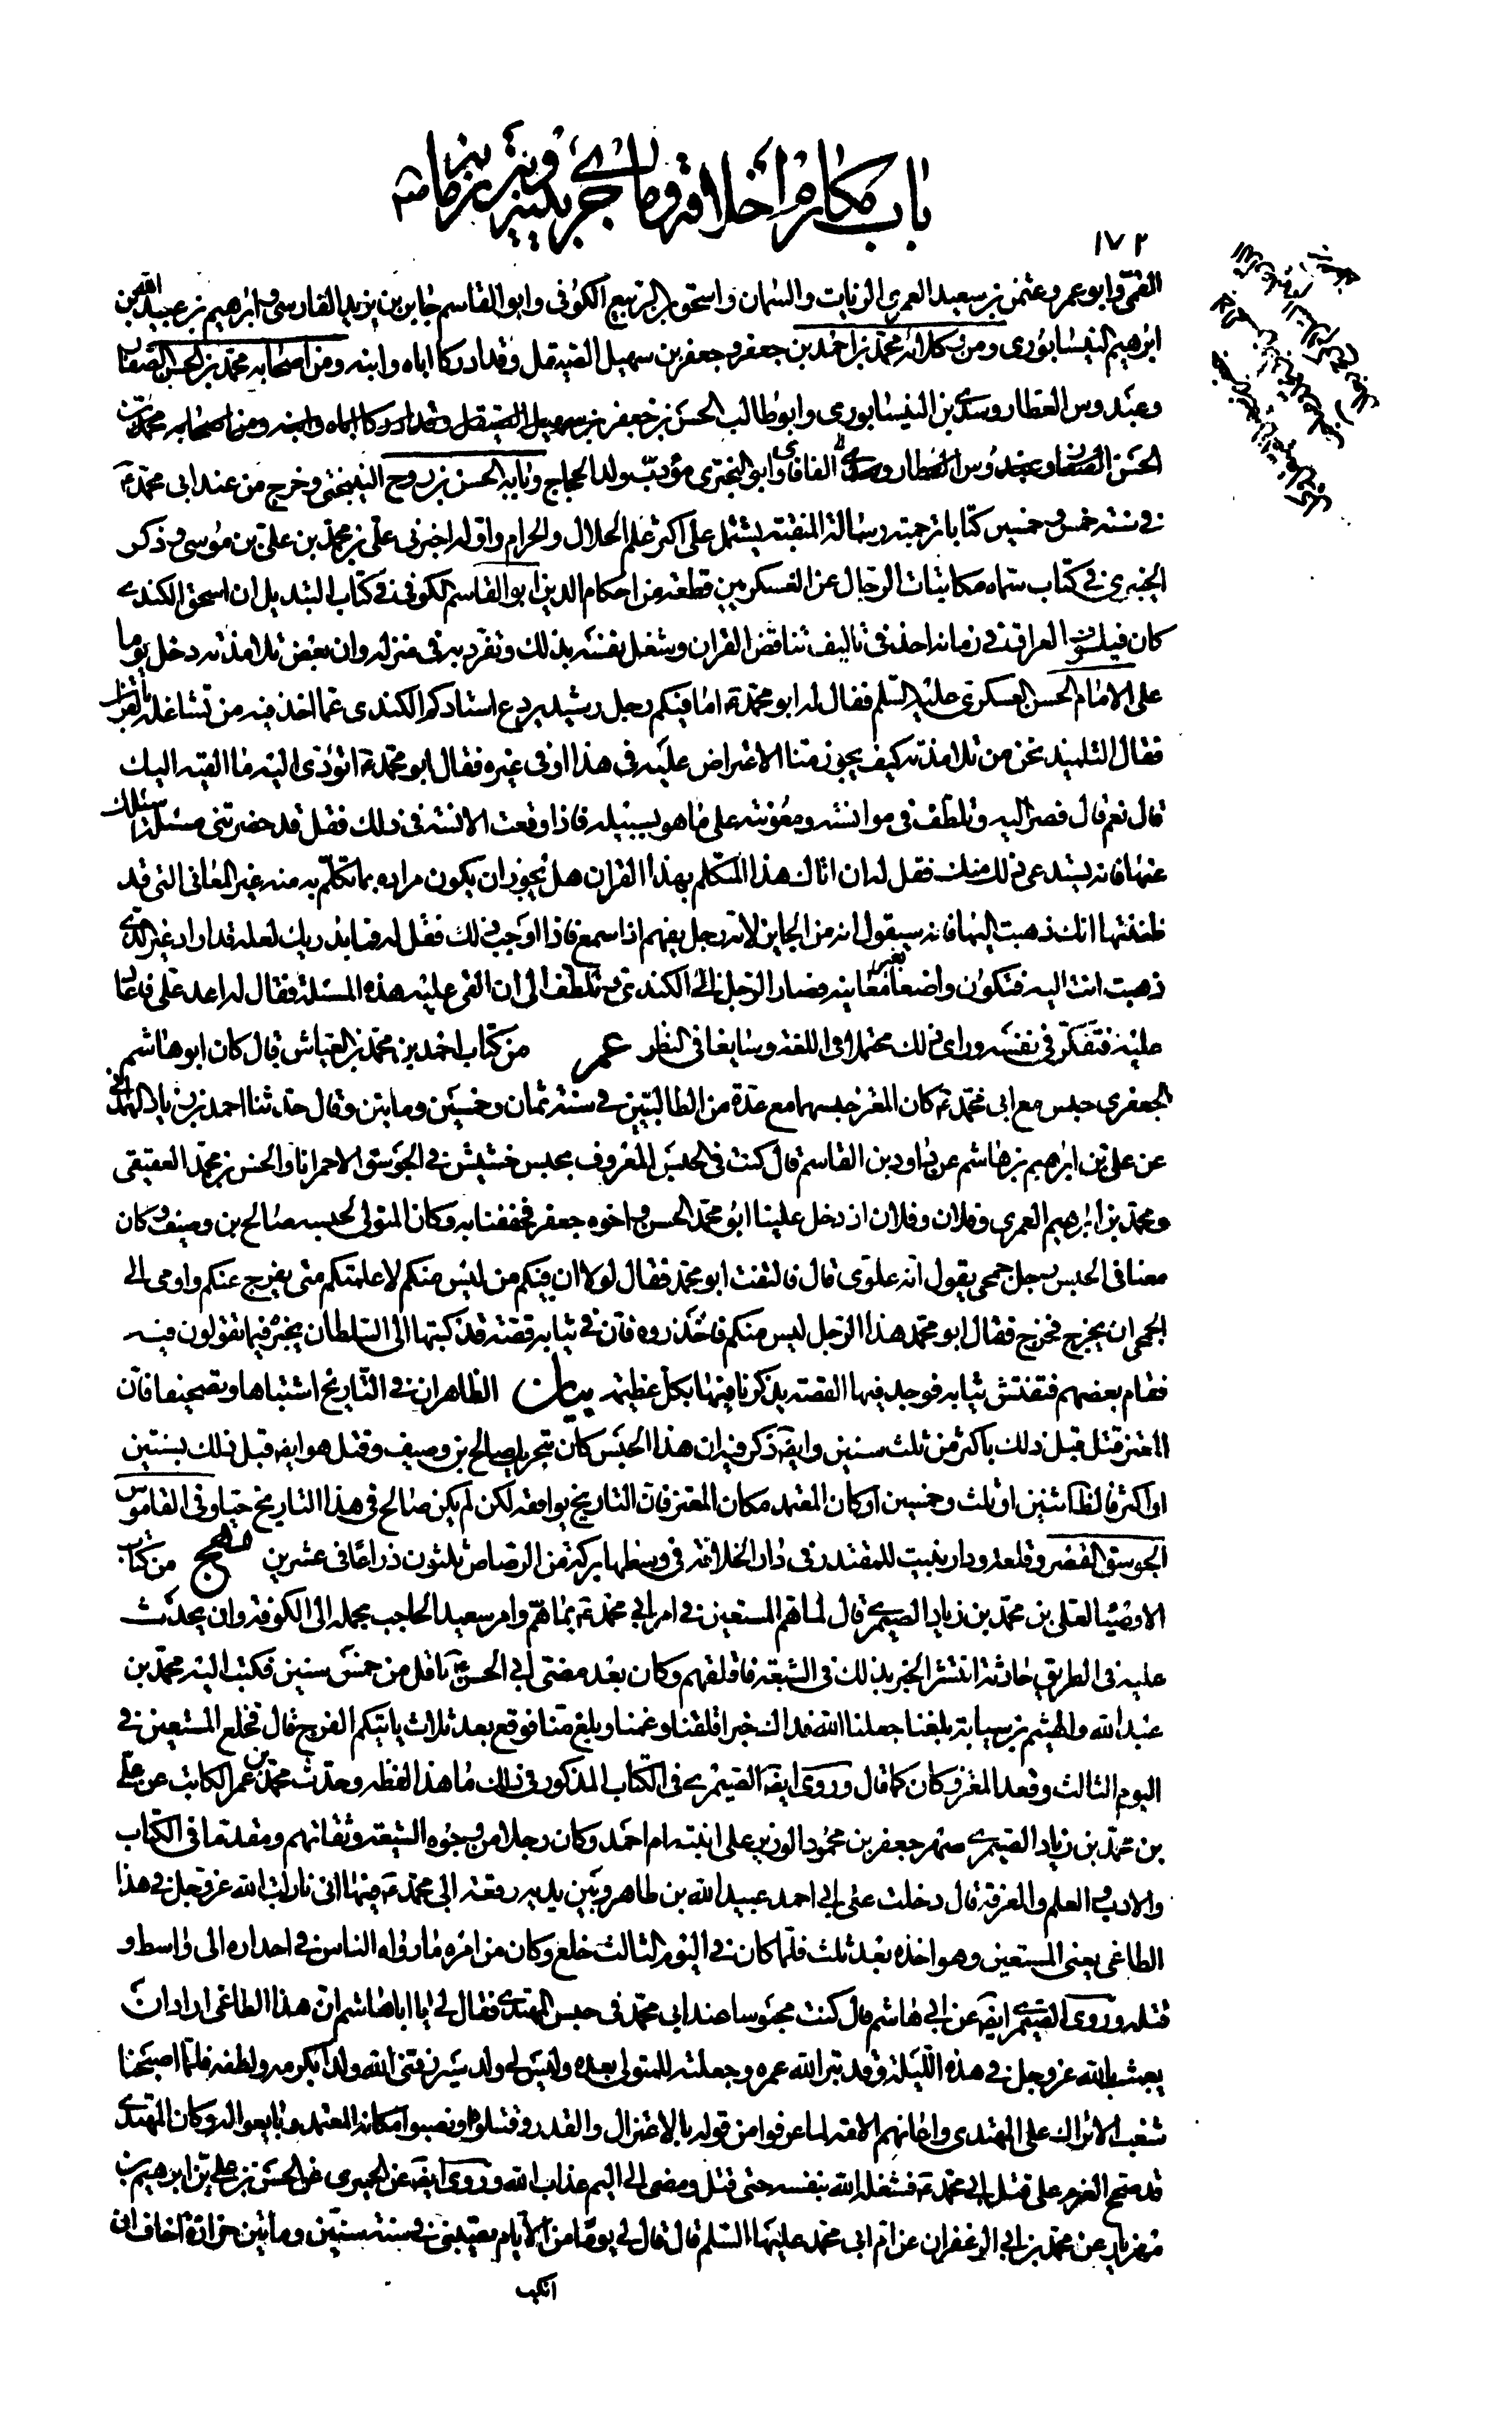 باب مكارم اخلاقه وما جرى بينه وبين زمانه
١٧٢
القمّي وابو عمرو عثمن بن سعيد العمري الزيات والسّمان واسحق بن الربيع الكوفي وابو القاسم جابر بن يزيد الفارسي وابرهيم بن عبيد الله بن
ابرهيم النيسابوري ومن وكلائه محمّد بن احمد بن جعفر وجعفر بن سهيل الصيقل وقد ادركا اباه وابنه ومن اصحابه محمّد بن الحسن الصفار
وعبدوس العطار وسري بن النيسابوري وابو طالب الحسن بن جعفر بن سهيل الصيقل وقد ادركا اباه وابنه ومن اصحابه محمّد بن
الحسن الصفار وعبدوس العطار و الفافاى وابو البختري مؤدب ولد الحجاج وبابه الحسن بن روح النيبختي وخرج من عند ابي محمّد ع
في سنة خمس وخمسين كتابا ترجمته رسالة المنقبة يشتمل على اكثر علم الحلال والحرام واوله اخبرني علي بن محمّد بن علي بن موسى وذكر
الخيبري في كتاب سماه مكاتبات الرجال عن العسكريين قطعة من احكام الدين ابو القاسم الكوفي في كتاب التبديل ان اسحق الكندي
كان فيلسوف العراق في زمانه اخذ في تاليف تناقض القران وشغل نفسه بذلك وتفرد به في منزله وان بعض تلامذته دخل يوما
على الامام الحسن العسكري عليه السّلم فقال له ابو محمّد ع اما فيكم رجل رشيد يردع استادكم الكندي عما اخذ فيه من تشاغله بالقران
فقال التلميذ نحن من تلامذته كيف يجوز منّا الاعتراض عليه في هذا او في غيره فقال ابو محمّد ع اتؤدّي اليه ما القيه اليك
قال نعم قال فصر اليه وتلطف في موانسته ومعونته على ما هو بسبيله فاذا وقعت الانسة في ذلك فقل قد حضرتني مسئلة اسئلك
عنها فانه يستدعي ذلك منك فقل له ان اتاك هذا المتكلم بهذا القران هل يجوز ان يكون مراده بما تكلّم به منه غير المعاني التي قد
ظننتها انك ذهبت اليها فانه سيقول انه من الجايز لانه رجل يفهم اذا سمع فاذا اوجب ذلك فقل له فما يدريك لعله قد اراد غير الّذي
ذهبت انت اليه فتكون واضعا لغير معانيه فصار الرجل الى الكندي وتلطف الى ان القى عليه هذه المسئلة فقال له اعد علي فاعاد
عليه فتفكّر في نفسه وراى ذلك محتملا في اللغة وسايغا في النظر عمر من كتاب احمد بن محمّد بن العياش قال كان ابو هاشم
الجعفري حبس مع ابي محمّد ع كان المعتز حبسهما مع عدة من الطالبيّين في سنة ثمان وخمسين ومايتين وقال حدثنا احمد بن زياد الهمداني
عن علي بن ابرهيم بن هاشم عن داود بن القاسم قال كنت في الحبس المعروف بحبس خشيش في الجوسق الاحمر انا والحسن بن محمّد العقيقي
ومحمّد بن ابرهيم العمري وفلان وفلان اذ دخل علينا ابو محمّد الحسن واخوه جعفر فخففنا به وكان المتولي لحبسه صالح بن وصيف وكان
معنا في الحبس رجل جمحي يقول انه علوي قال فالتفت ابو محمّد فقال لولا ان فيكم من ليس منكم لاعلمتكم متى يفرج عنكم واومى الى
الجمحي ان يخرج فخرج فقال ابو محمّد هذا الرجل ليس منكم فاحذروه فان في ثيابه قصّة قد كتبها الى السّلطان يخبره فيما تقولون فيه
فقام بعضهم ففتش ثيابه فوجد فيها القصة يذكرنا فيها بكل عظيمة بيان الظاهر ان في التّاريخ اشتباها وتصحيفا فان
المعتز قتل قبل ذلك باكثر من ثلث سنين وايضا ذكر فيه ان هذا الحبس كان بتحريك صالح بن وصيف وقتل هو ايضا قبل ذلك بسنتين
او اكثر فالظ اثنين او ثلث وخمسين او كان المعتمد مكان المعتز فان التاريخ يوافقه لكن لم يكن صالح في هذا التاريخ حيّا وفي القاموس
الجوسق القصر وقلعة ودار بنيت للمقتدر في دار الخلافة في وسطها بركة من الرصاص ثلثون ذراعا في عشرين مهج من كتاب
الاوصيا لعلي بن محمّد بن زياد الصيمري قال لما هم المستعين في امر ابي محمّد ع بما هم وامر سعيد الحاجب بحمله الى الكوفة وان يحدث
عليه في الطريق حادثة انتشر الخبر بذلك في الشيعة فاقلقهم وكان بعد مضي ابي الحسن ع باقل من خمس سنين فكتب اليه محمّد بن
عبد الله والهيثم بن سيابة بلغنا جعلنا الله فداك خبر اقلقنا وغمنا وبلغ منّا فوقع بعد ثلاث ياتيكم الفرج قال فخلع المستعين في
اليوم الثالث وقعد المعتز وكان كما قال وروى ايضا الصيمري في الكتاب المذكور في ذلك ما هذا لفظه وحدث محمّد بن عمر الكاتب عن علي
بن محمّد بن زياد الصيمري صهر جعفر بن محمود الوزير على ابنته ام احمد وكان رجلا من وجوه الشيعة وثقاتهم ومقدما في الكتاب
والادب والعلم والمعرفة قال دخلت على ابي احمد عبيد الله بن طاهر وبين يديه رقعة ابي محمّد ع فيها اني نازلت الله عز وجل في هذا
الطاغي يعني المستعين وهو اخذه بعد ثلث فلما كان في اليوم الثالث خلع وكان من امره ما رواه الناس في احداره الى واسط و
قتله وروى الصيمري ايضا عن ابي هاشم قال كنت محبوسا عند ابي محمّد في حبس المهتدي فقال لي يا ابا هاشم ان هذا الطاغي اراد ان
يعبث بالله عز وجل في هذه اللّيلة وقد بتر الله عمره وجعلته للمتولي بعده وليس لي ولد سيرزقني الله ولدا بكرمه ولطفه فلما اصبحنا
شغب الاتراك على المهتدي واعانهم الامة لما عرفوا من قوله بالاعتزال والقدر وقتلوه ونصبوا مكانه المعتمد وبايعوا له وكان المهتدي
قد صحح العزم على قتل ابي محمّد ع فشغله الله بنفسه حتى قتل ومضى الى اليم عذاب الله وروى ايضا عن الحميري عن الحسن بن علي بن ابرهيم بن
مهزيار عن محمّد بن ابي الزعفران عن ام ابي محمّد عليها السّلم قال قال لي يوما من الايام يصيبني في سنة ستين ومائتين حزازة اخاف ان
انكب